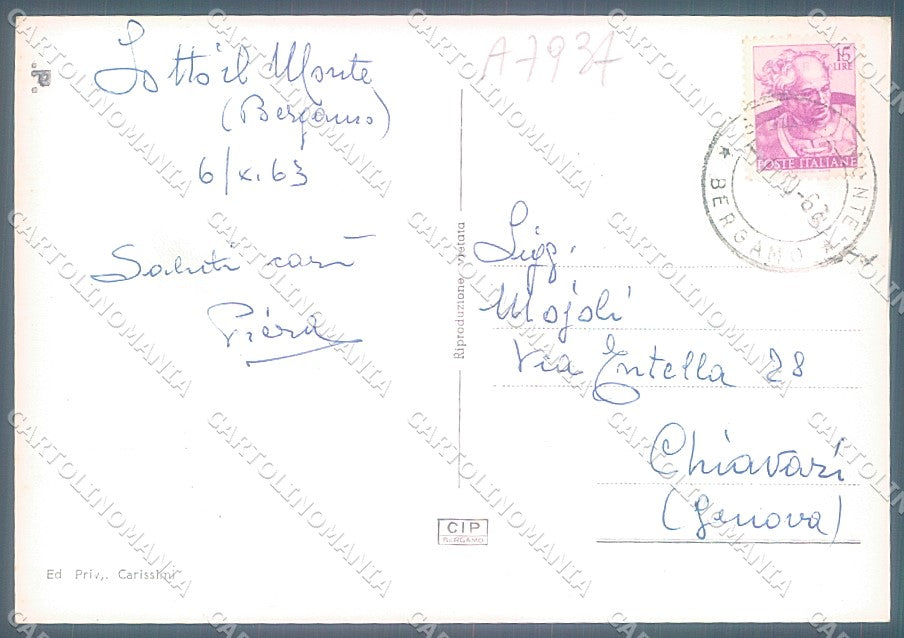 Sotto il Monte
(Bergamo)
6/x.63
Saluti cari
Piera
Ed Priv,. Carissimi
Riproduzione vietata
CIP
BERGAMO
A7937
15
LIRE
POSTE ITALIANE
BERGAMO
Sigg.
Mojoli
Via Entella 28
Chiavari
(Genova)
CARTOLINOMANIA